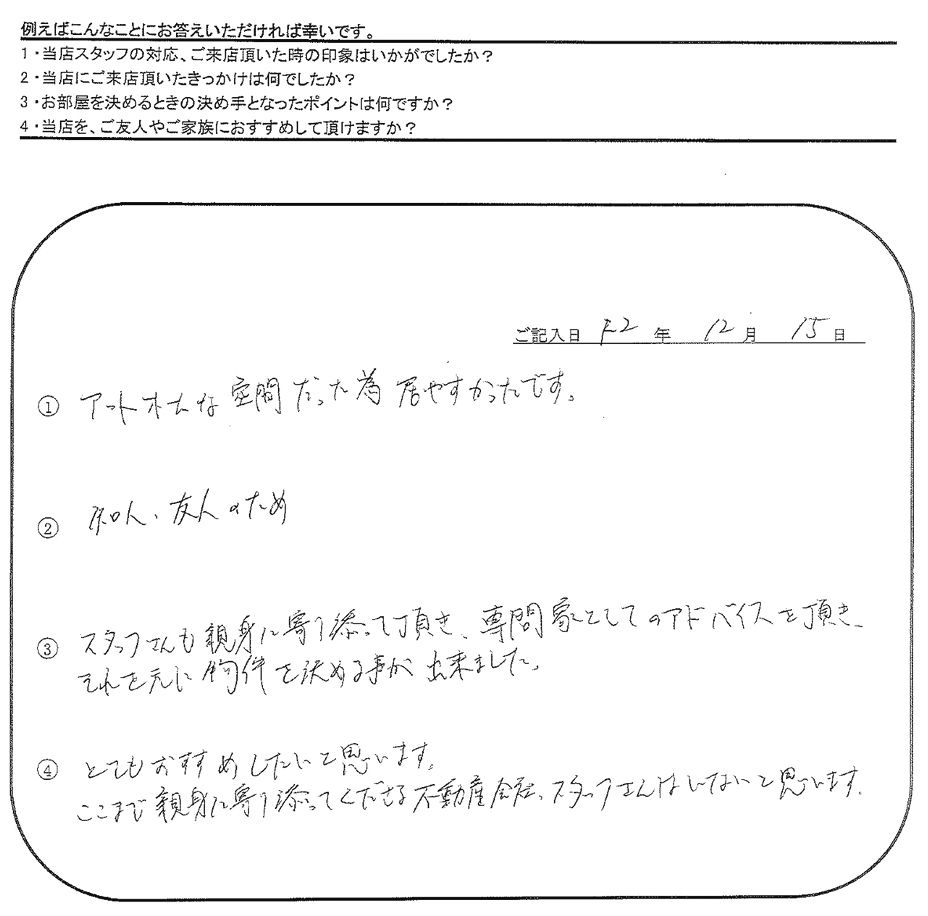 例えばこんなことにお答えいただければ幸いです。
1・当店スタッフの対応、ご来店頂いた時の印象はいかがでしたか？
2・当店にご来店頂いたきっかけは何でしたか？
3・お部屋を決めるときの決め手となったポイントは何ですか？
4・当店を、ご友人やご家族におすすめして頂けますか？
ご記入日 R2 年 12 月 15 日
① アットホームな空間だった為居やすかったです。
② 知人、友人のため
③ スタッフさんも親身に寄り添って頂き、専門家としてのアドバイスを頂き、
それを元に物件を決める事が出来ました。
④ とてもおすすめしたいと思います。
ここまで親身に寄り添ってくださる不動産会社、スタッフさんはいないと思います。